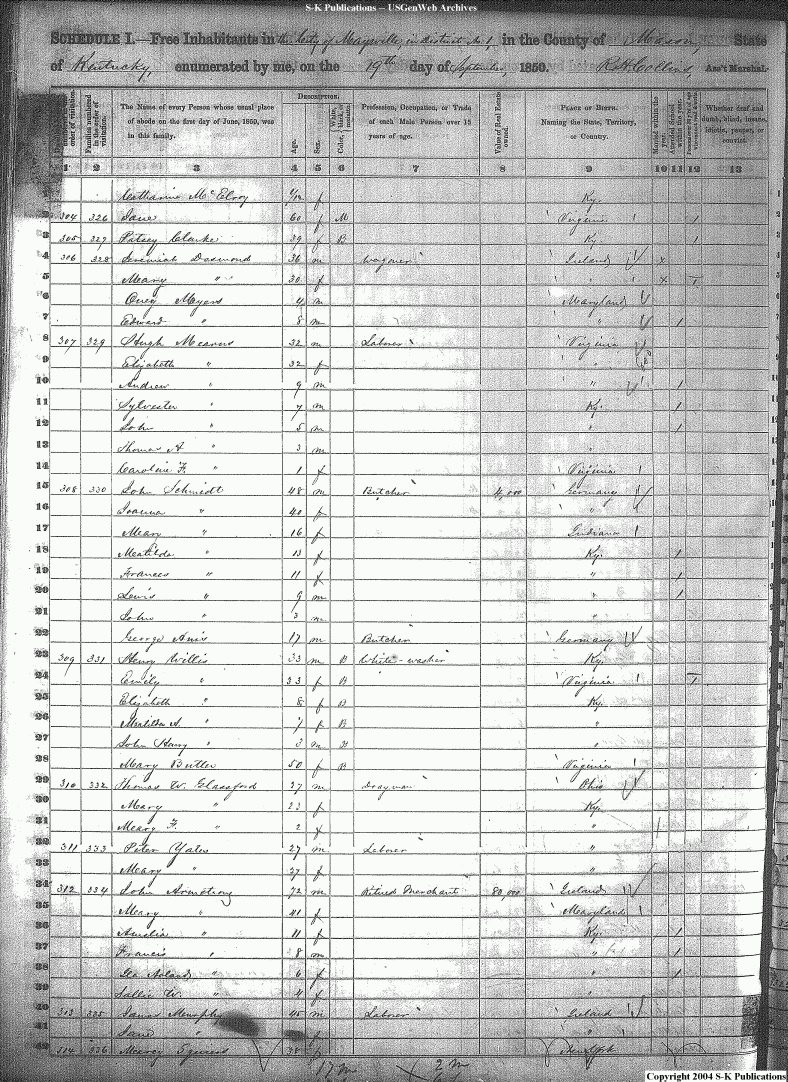 S-K Publications -- USGenWeb Archives
SCHEDULE I.—Free Inhabitants in the City of Maysville, in district No 1, in the County of Mason, State
of Kentucky, enumerated by me, on the 19th day of September, 1850. R H Collins, Ass't Marshal.
Families numbered in the order of visitation.
The Name of every Person whose usual place of abode on the first day of June, 1850, was in this family.
DESCRIPTION.
Age.
Sex.
White, black, or mulatto.
Color,
Profession, Occupation, or Trade of each Male Person over 15 years of age.
Value of Real Estate owned.
PLACE OF BIRTH. Naming the State, Territory, or Country.
Married within the year.
Whether deaf and dumb, blind, insane, idiotic, pauper, or convict.
1 2 3 4 5 6 7 8 9 10 11 12 13
Catharine McElroy 1/12 f Ky. 1
2 304 326 Jane 60 f M Virginia 1
3 305 327 Patsey Clarke 39 f B Ky 1
4 306 328 Jeremiah Desmond 36 m Wagoner Ireland x
5 Meary " 30 f " x 1
6 Meyers m Maryland
7 Edward " 8 m " 1
8 307 329 Hugh Mearns 32 m Laborer Virginia
9 Elizabeth " 32 f "
10 Andrew " 9 m " 1
11 Sylvester " 7 m Ky. 1
12 John " 5 m " 1
13 Thomas A " 3 m "
14 Caroline F. " 1 f Virginia
15 308 330 John Schmidt 48 m Butcher 4,000 Germany
16 Joanna " 40 f "
17 Meary " 16 f Indiana
18 Meatilda " 13 f Ky. 1
19 Frances " 11 f " 1
20 Lewis " 9 m " 1
21 John " 3 m "
22 George Anis 17 m Butcher Germany
23 309 331 Henry Willis 33 m B White-washer Ky.
24 Emily " 33 f B Virginia 1
25 Elizabeth " 8 f B Ky.
26 Meatilda A. " 7 f B "
27 John Harry " 3 m B "
28 Meary Butler 50 f B Virginia
29 310 332 Thomas W. Glassford 27 m Drayman Ohio
30 Meary " 23 f Ky.
31 Meary F. " 2 f "
32 311 333 Peter Yates 27 m Laborer "
33 Meary " 27 f "
34 312 334 John Armstrong 72 m Retired Merchant 80,000 Ireland
35 Meary " 41 f Maryland
36 Amelia " 11 f Ky. 1
37 Francis " 8 m " 1
38 " 6 f " 1
39 Sallie W. " 4 f "
40 313 335 James Meurphy 45 m Laborer Ireland
41 Jane " f "
42 314 336 Squiers f New York
17 m 2 m
Copyright 2004 S-K Publications